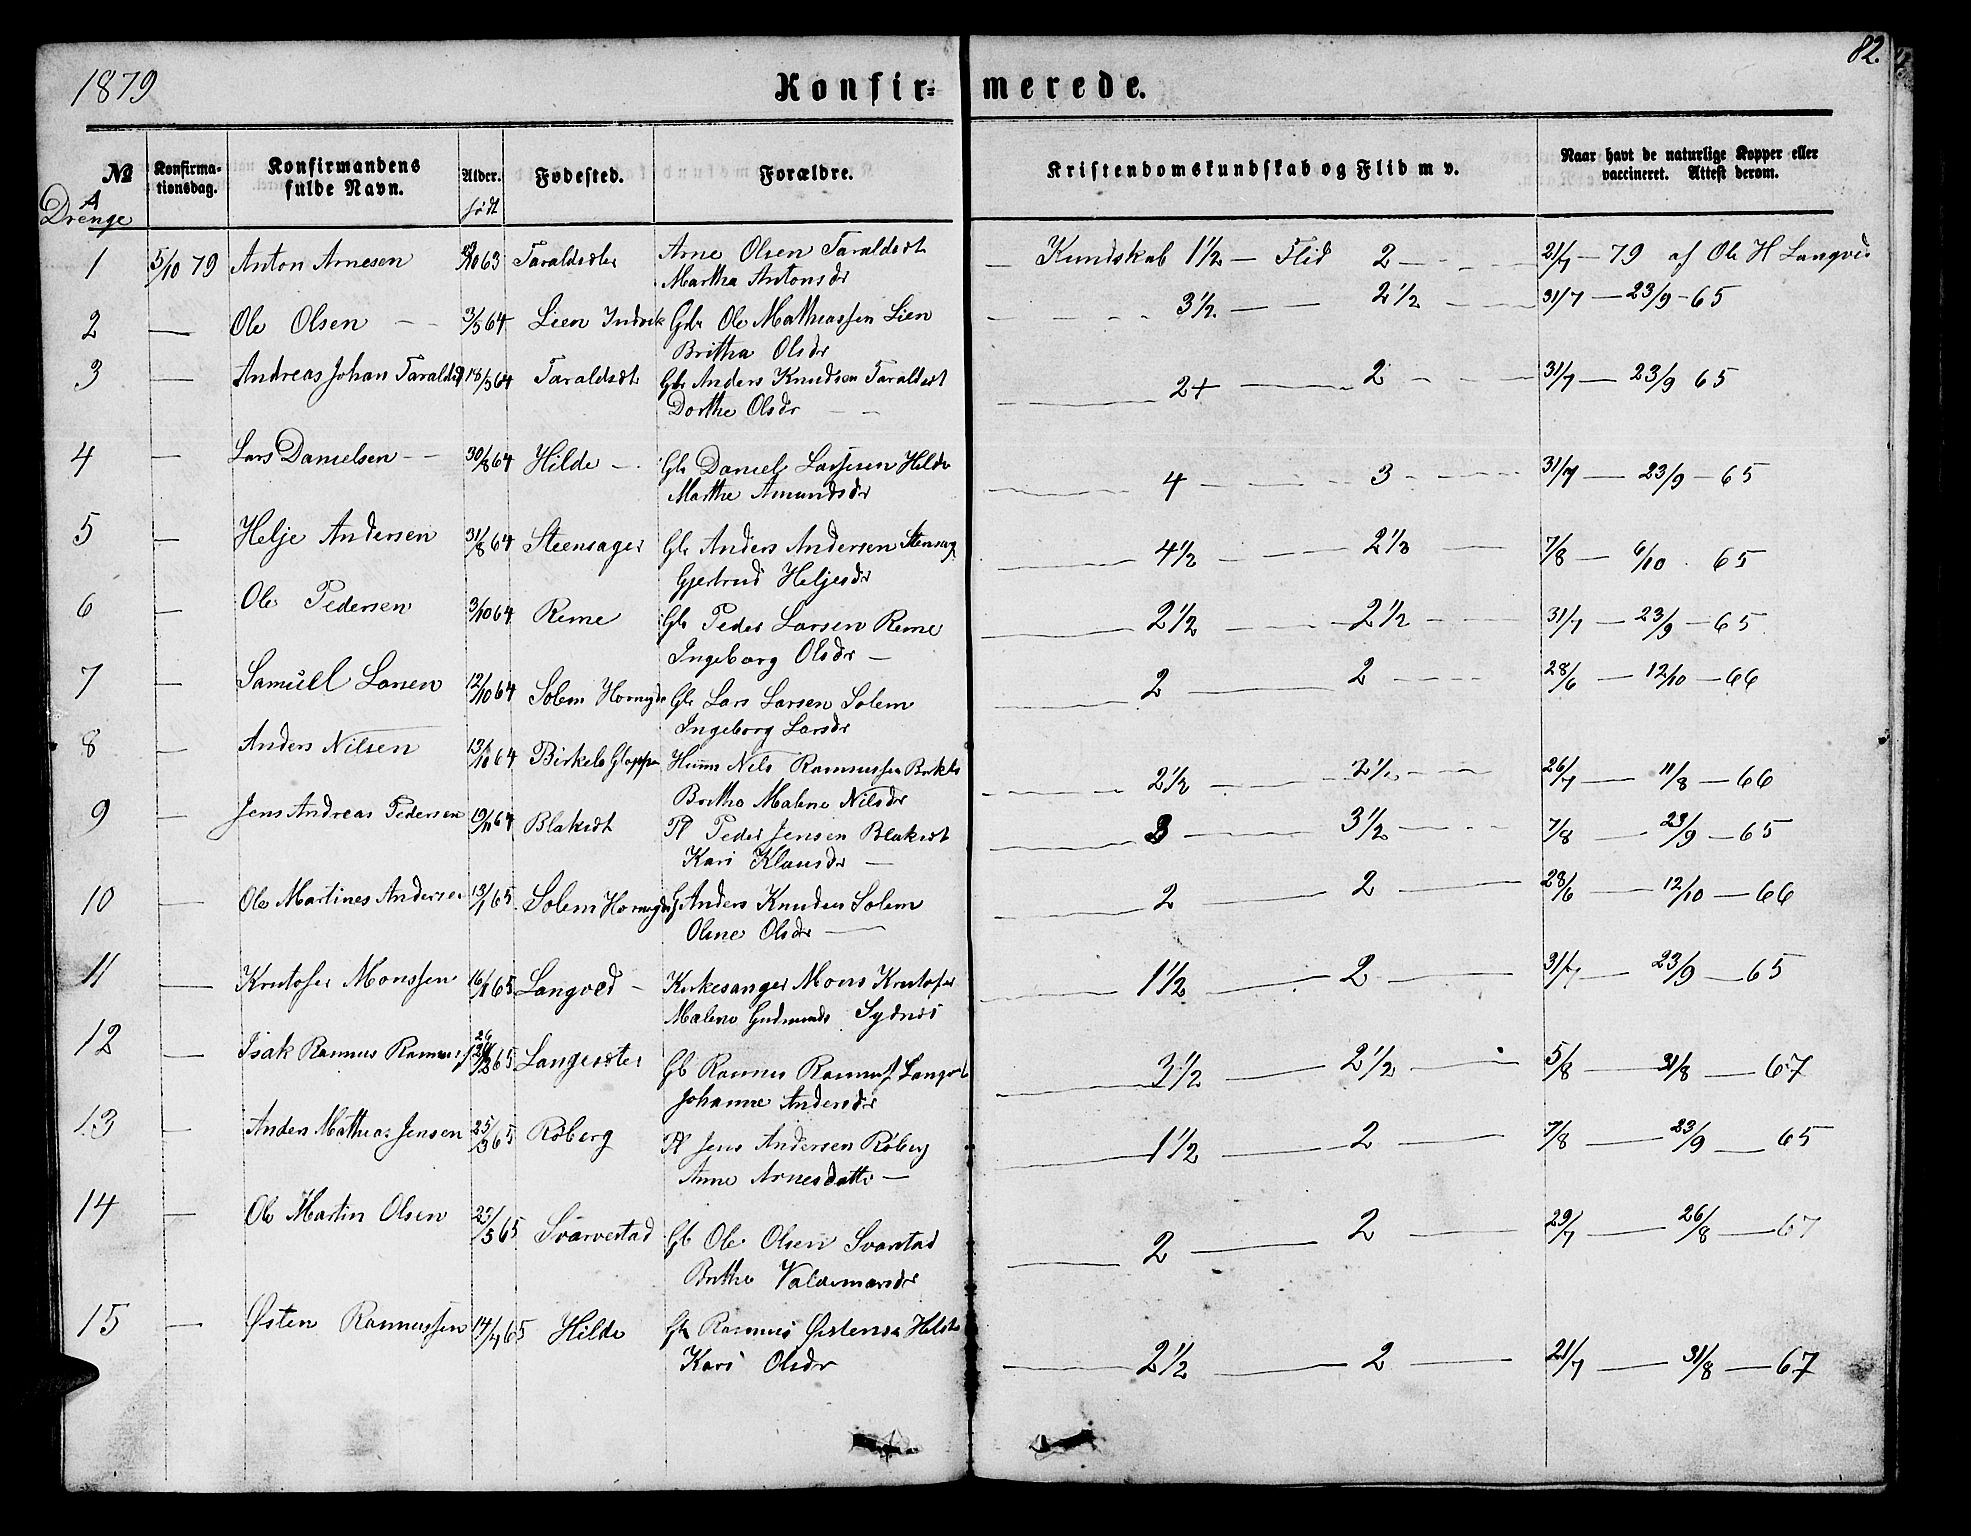 82.
1879
Konfir= merede.
№ Konfirma-tionsdag. Konfirmandens fulde Navn. Alder. Fødested. Forældre. Kristendomskundskab og Flid m v. Naar havt de naturlige Kopper eller vaccineret. Attest derom.
A Drenge født
1 5/10 79 Anton Arnesen /10 63 Arne Olsen Taraldset — Kundskab 1½ — Flid 2 — 21/7 — 79 af Ole H
Martha Antonsdr
2 — Ole Olsen — 3/5 64 Lien Indvik Gbr Ole Mathiassen Lien 3½ — 2½ — 31/7 — 23/9 - 65
Britha Olsdr
3 — Andreas Johan 18/5 64 Taraldset Gbr Anders Knudsen Taraldset — 2+ — 2 — 31/7 — 23/9 65
Dorthe Olsdr —
4 — Lars Danielsen — 30/8 64 Hilde — Gbr Daniel Hilde — 4 — 3 — 31/7 — 23/9 — 65
Marthe Amundsdr
5 — Helje Andersen 31/8 64 Steensager Gbr Anders Andersen — 4½ — 7/8 — 6/10 . 65
Gjertrud Heljesdr
6 — Ole Pedersen 3/10 64 Reme Gbr Peder Larsen Reme — 2½ — 2½ — 31/7 — 23/9 — 65
Ingeborg Olsdr —
7 — Samuel Larsen 12/10 64 Solem Gbr Lars Larsen Solem — 2 — 2 — 28/6 — 12/10 — 66
Ingeborg Larsdr
8 — Anders Nilsen 13/10 64 Birkelo Gloppen Nils Rasmussen — 2½ — 26/7 — 11/8 — 66
Britha Malene Nilsdr
9 — Jens Andreas Pedersen 19/11 64 Blakset Pl Peder Jensen Blakset — 3 — 3½ — 7/8 — 23/9 — 65
Kari Klausdr —
10 — Ole Martines Andersen 13/1 65 Solem G Anders Knudsen Solem — 2 — 2 — 28/6 — 12/10 — 66
Oline Olsdr —
11 — Kristofer Monssen 16/1 65 Langved — Kirkesanger Mons Kristofer — 1½ — 2 — 31/7 — 23/9 — 65
Malene Sydnes
12 — Isak Rasmus 65 Langesæter Gb Rasmus — 3½ — 2½ — 5/8 — 31/8 — 67
Johanne Andersdr
13 — Anders Mathias Jensen 25/3 65 Røberg Pl Jens Andersen Røberg — 1½ — 2 — 7/8 — 23/9 — 65
Anne Arnesdatter —
14 — Ole Martin Olsen /3 65 Svarvestad Gb Ole Olsen Svarstad — 2 — 2 — 29/7 — 26/8 — 67
Brithe Valdemarsdr
15 — Østen Rasmussen 14/4 65 Hilde Gb Rasmus — 2½ — 2 — 21/7 — 31/8 — 67
Kari Olsdr